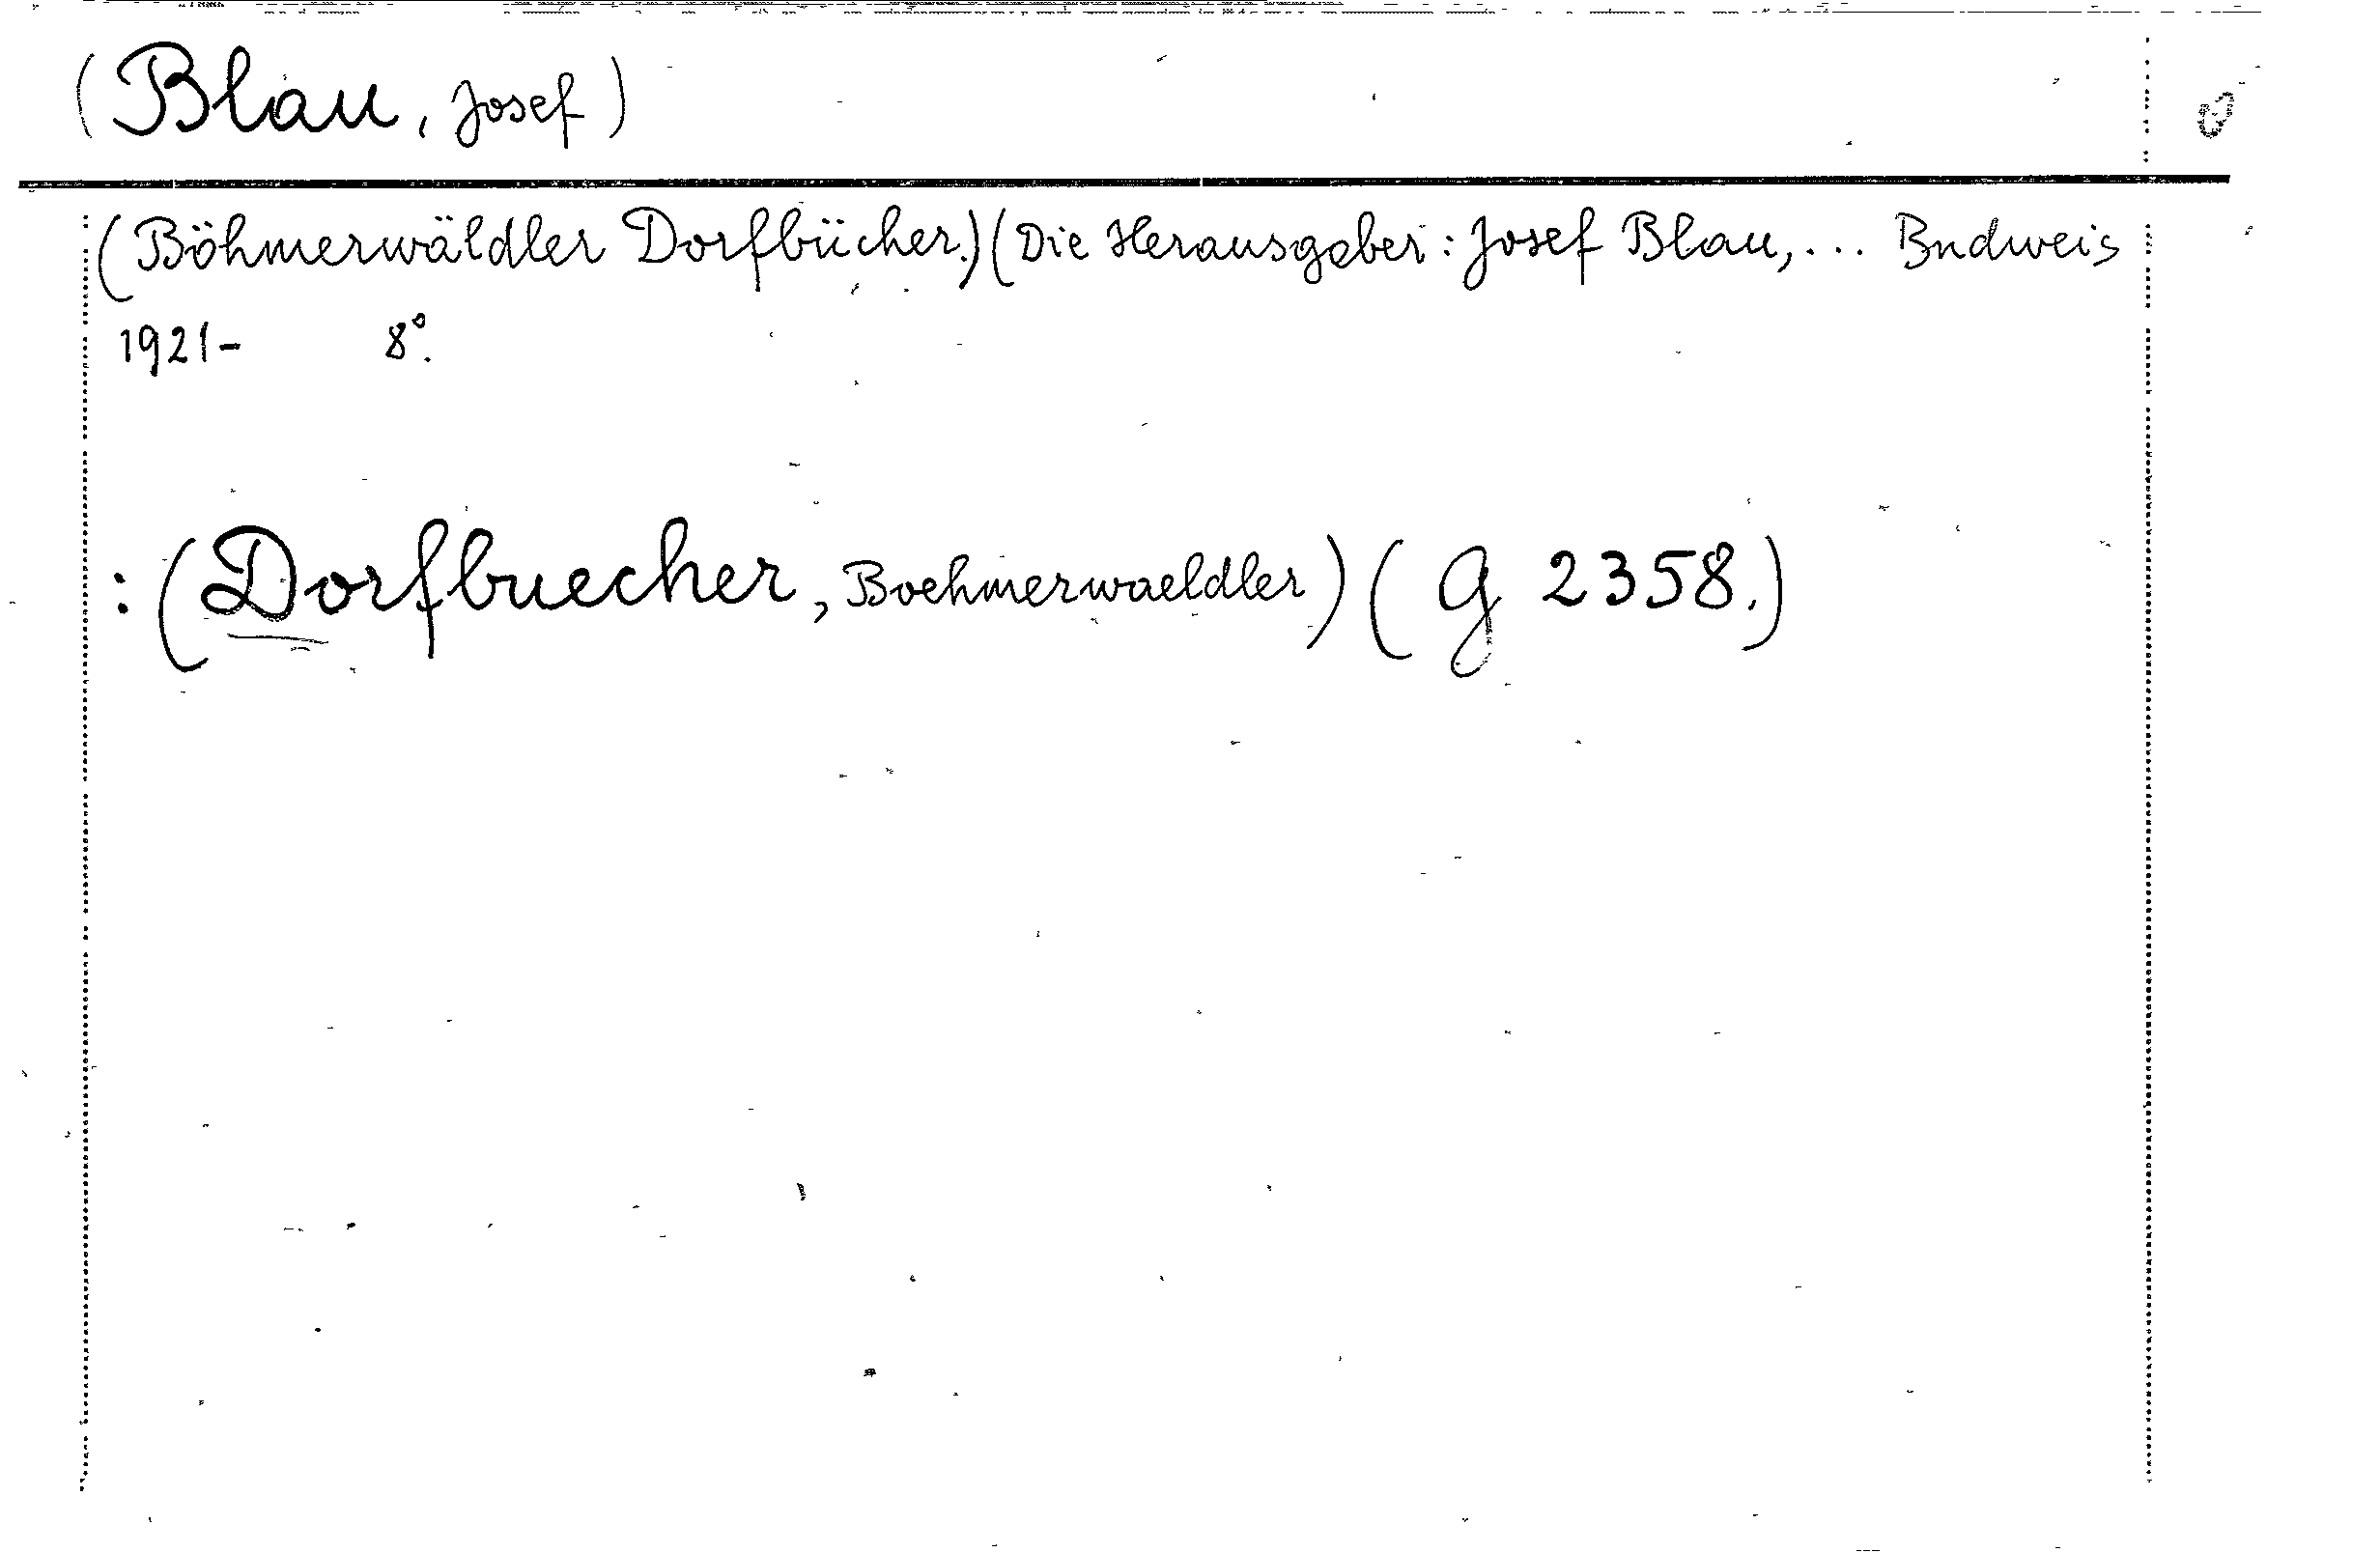 (Blau, Josef)
(Böhmerwäldler Dorfbücher.)(Die Herausgeber: Josef Blau,... Budweis
1921- 8°.
:(Dorfbuecher, Boehmerwaeldler)(G 2358.)